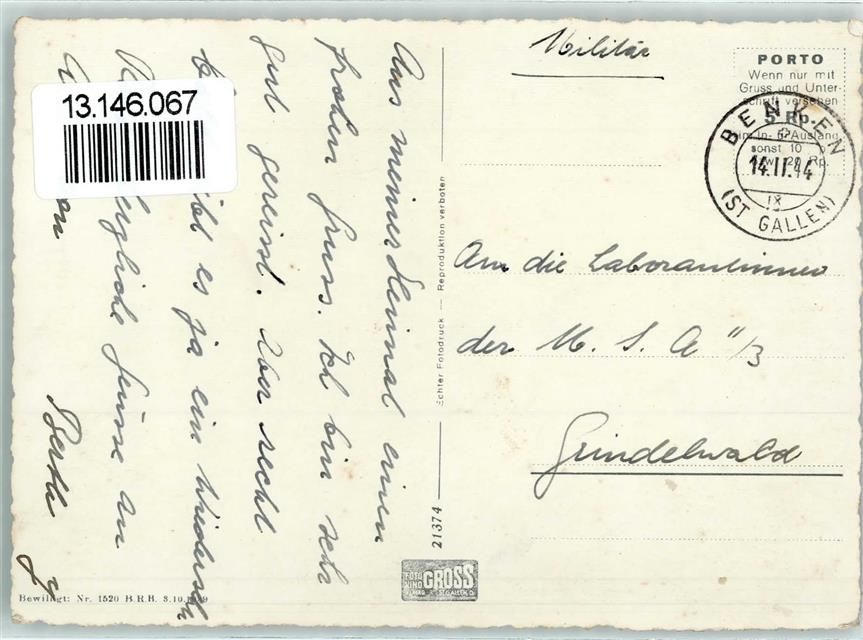 Militär
PORTO
Wenn nur mit
Gruss und Unter-
schrift versehen
5 Rp.
im In- & Ausland
sonst 10
bzw. 20 Rp.
BENKEN
14.II.44
IX
(ST GALLEN)
13.146.067
Aus meiner Heimat einen
frohen Gruss. Ich bin sehr
gut gereist. Aber recht
es ja ein Wiedersehn
herzliche Grüsse an
von
Bertha
An die Laborantinnen
der M. S. A II/3
Grindelwald
Echter Fotodruck — Reproduktion verboten
21374
FOTO
UND GROSS
VERLAG ST. GALLEN
Bewilligt: Nr. 1520 B.R.B. 3.10.1939